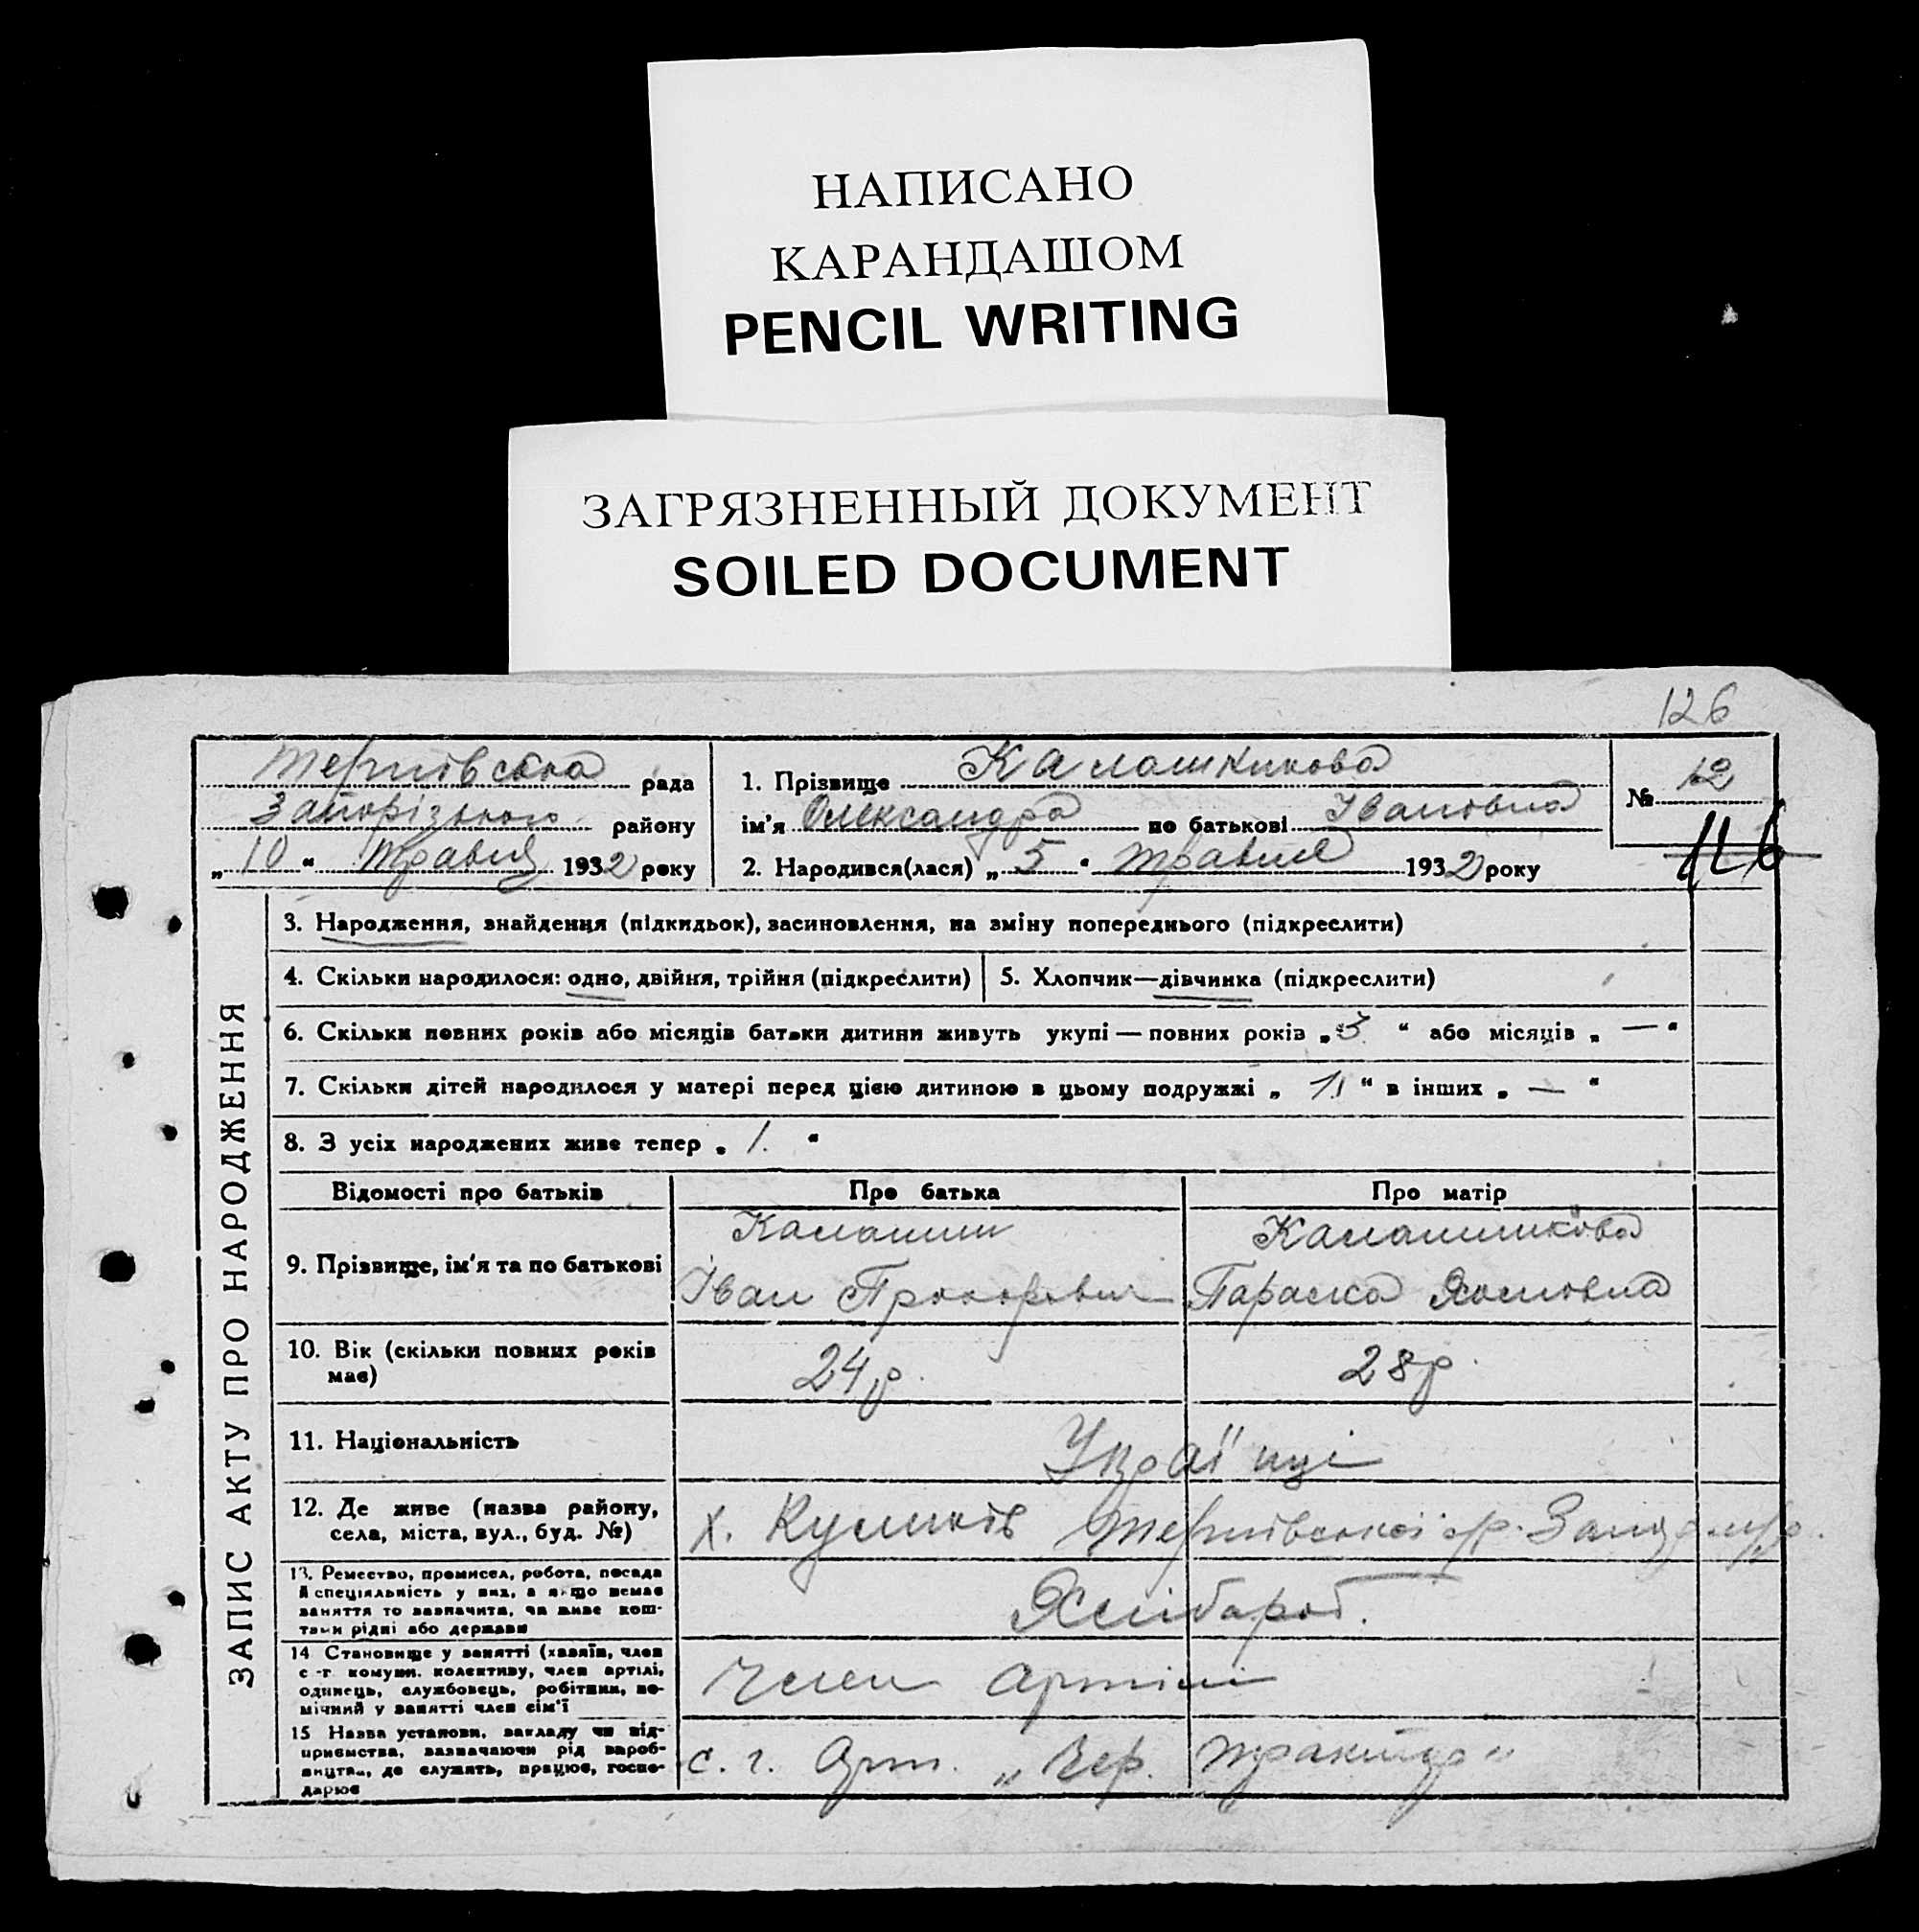 НАПИСАНО
КАРАНДАШОМ
PENCIL WRITING
ЗАГРЯЗНЕННЫЙ ДОКУМЕНТ
SOILED DOCUMENT
126
Тернівська рада
Запорізького району
„ 10 “ травня 1932 року
1. Прізвище Калашникова
ім'я Олександра по батькові Івановна
2. Народився(лася) „ 5 “ травня 1932 року
№ 12
116
ЗАПИС АКТУ ПРО НАРОДЖЕННЯ
3. Народження, знайдення (підкидьок), засиновлення, на зміну попереднього (підкреслити)
4. Скільки народилося: одно, двійня, трійня (підкреслити)
5. Хлопчик—дівчинка (підкреслити)
6. Скільки повних років або місяців батьки дитини живуть укупі — повних років „ 3 “ або місяців „ — “
7. Скільки дітей народилося у матері перед цією дитиною в цьому подружжі „ 1 “ в інших „ — “
8. З усіх народжених живе тепер „ 1. “
Відомості про батьків Про батька Про матір
9. Прізвище, ім'я та по батькові
Калашник
Іван Прохорович
Калашникова
Параска
10. Вік (скільки повних років має)
24 р.
28 р.
11. Національність
Українці
12. Де живе (назва району,
села, міста, вул., буд. №)
х. Куликів Тернівської с/р.
13. Ремество, промисел, робота, посада
й спеціяльність у них, а якщо немає
заняття то зазначити, чи живе кош-
тами рідні або держави
Хлібороб.
14 Становище у занятті (хазяїн, член
с.-г. комуни. колективу, член артілі,
одинець, службовець, робітник, по-
мічний у занятті член сім'ї
Член артілі
15 Назва установи, закладу чи під-
приємства, зазначаючи рід вироб-
ництва, де служить, працює, госпо-
дарює
с. г. Арт. „Чер. трактор“